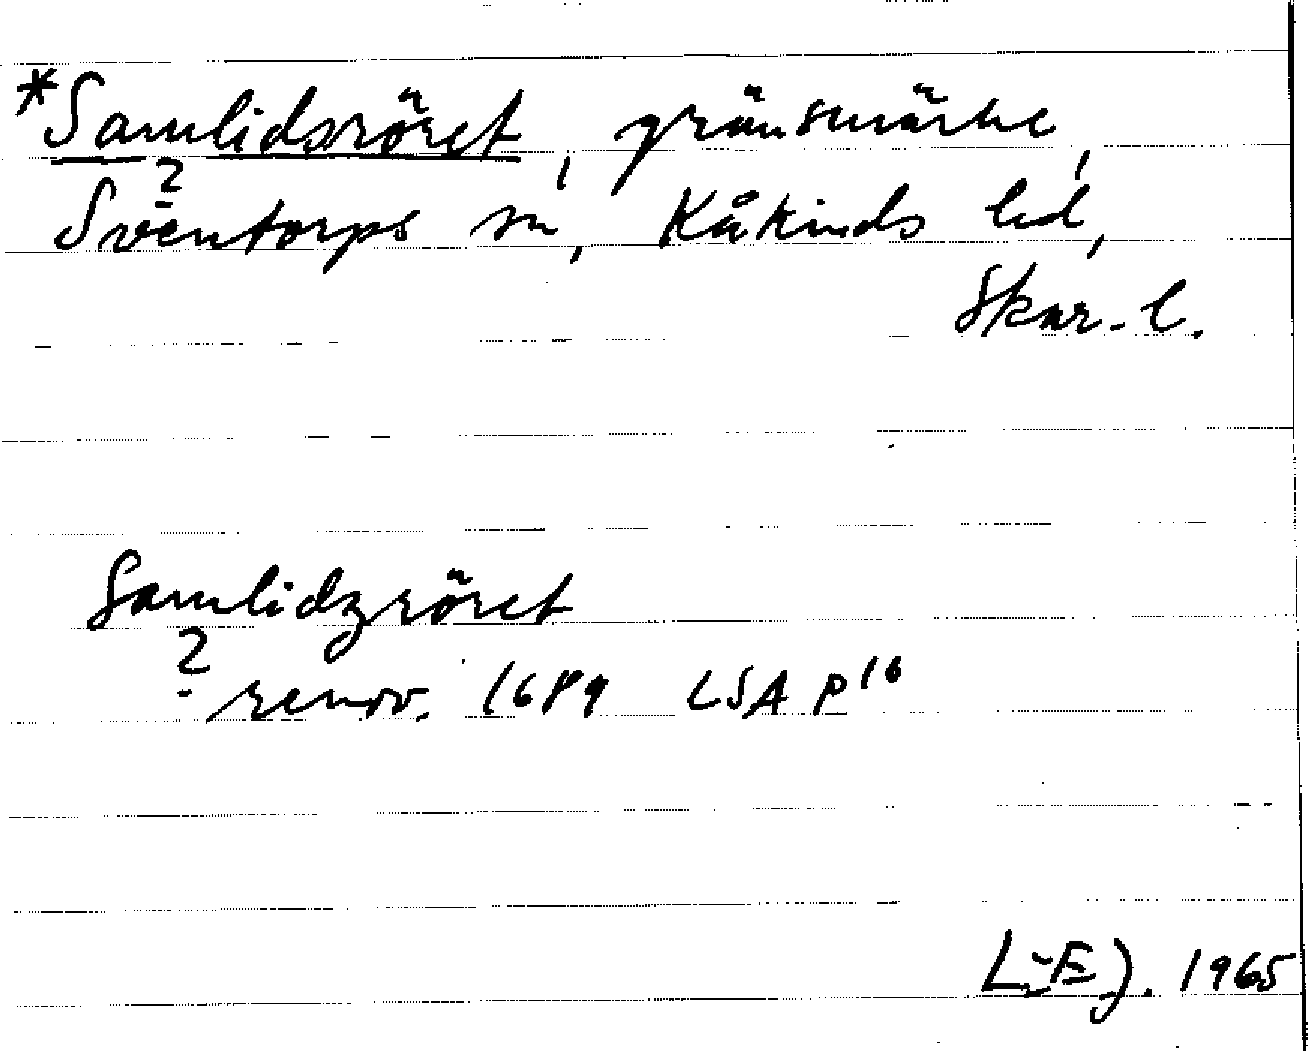 *Samlidsröret, gränsmärke,
?
Sventorps sn, Kåkinds hd,
Skar. l.
Samlidzröret
?
renov. 1689 LSA P16
L-E J. 1965